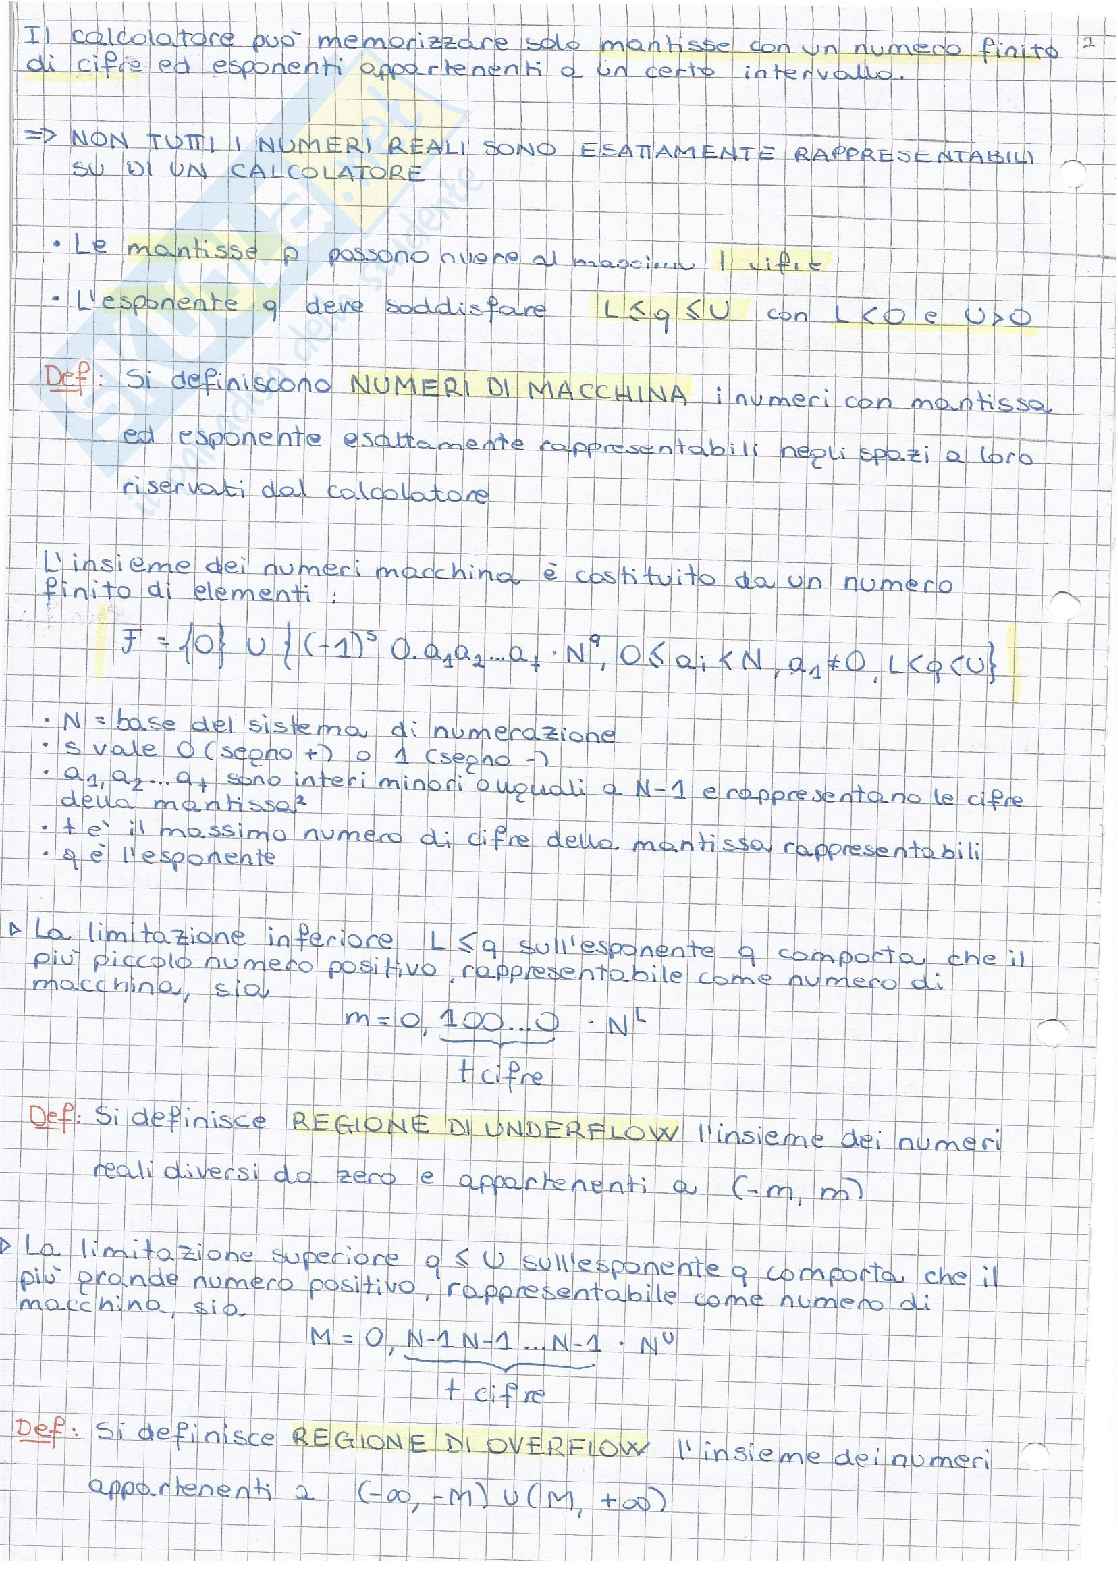 Il calcolatore può memorizzare solo mantisse con un numero finito 2
di cifre ed esponenti appartenenti a un certo intervallo.
=> NON TUTTI I NUMERI REALI SONO ESATTAMENTE RAPPRESENTABILI
SU DI UN CALCOLATORE
• Le mantisse p possono avere al massimo t cifre
• L'esponente q deve soddisfare L ≤ q ≤ U con L<0 e U>0
Def: Si definiscono NUMERI DI MACCHINA i numeri con mantissa
ed esponente esattamente rappresentabili negli spazi a loro
riservati dal calcolatore
L'insieme dei numeri macchina è costituito da un numero
finito di elementi:
F = {0} ∪ {(-1)^s 0.a₁a₂...a_t · N^q, 0 ≤ a_i < N, a₁ ≠ 0, L<q<U}
• N = base del sistema di numerazione
• s vale 0 (segno +) o 1 (segno -)
• a₁, a₂...a_t sono interi minori o uguali a N-1 e rappresentano le cifre
della mantissa²
• t è il massimo numero di cifre della mantissa rappresentabili
• q è l'esponente
▷ La limitazione inferiore L ≤ q sull'esponente q comporta che il
più piccolo numero positivo, rappresentabile come numero di
macchina, sia
m = 0,100...0 · N^L
t cifre
Def: Si definisce REGIONE DI UNDERFLOW l'insieme dei numeri
reali diversi da zero e appartenenti a (-m, m)
▷ La limitazione superiore q ≤ U sull'esponente q comporta che il
più grande numero positivo, rappresentabile come numero di
macchina, sia
M = 0, N-1 N-1 ... N-1 · N^U
t cifre
Def: Si definisce REGIONE DI OVERFLOW l'insieme dei numeri
appartenenti a (-∞, -M) ∪ (M, +∞)